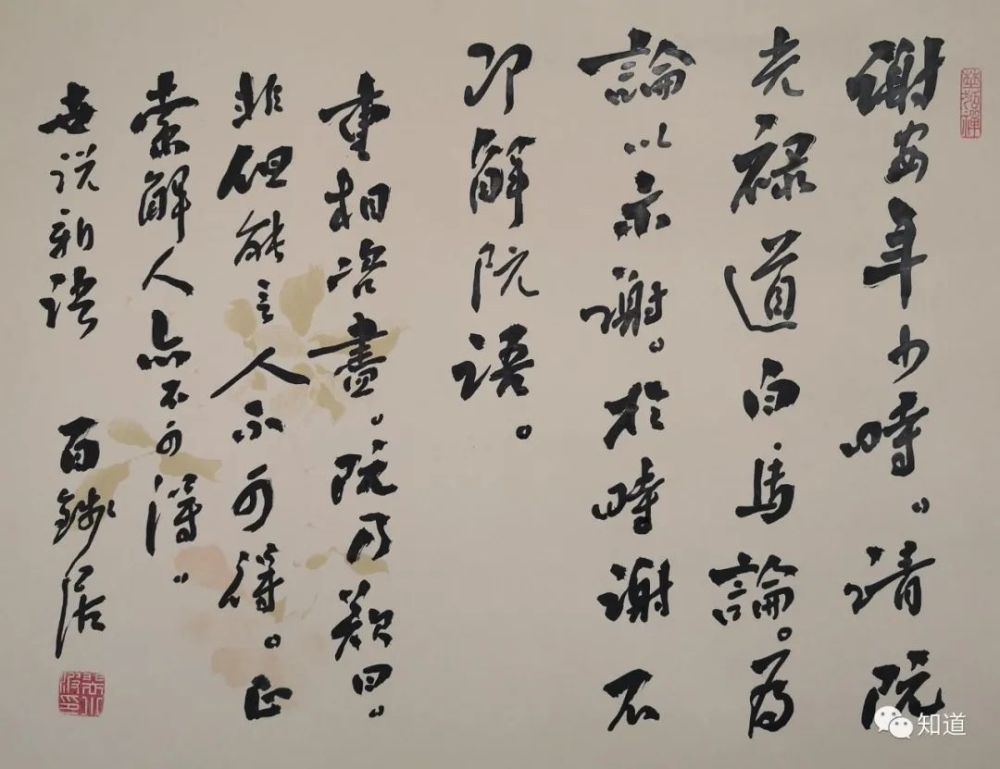 谢安年少時。请阮
光禄道白馬論。为
論以示谢。於時谢不
即解阮语。
重相咨盡。阮乃歎曰。
非但能言人不可得。正
索解人亦不可得。
世说新语 百居
知道